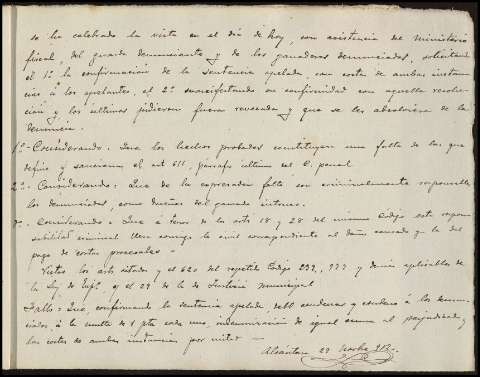 se ha celebrado la vista en el día de hoy, con asistencia del Ministerio
fiscal, del guarda denunciante y de los ganaderos denunciados, solicitando
el 1º la confirmación de la sentencia apelada, con costas de ambas instan-
cias á los apelantes, el 2º su conformidad con aquella resolu-
ción y los ultimos pidieron fuera revocada y que se les absolviera de la
denuncia.
1º- Considerando: Que los hechos probados constituyen una falta de las que
define y sanciona el art 611, párrafo ultimo del C. penal
2º- Considerando: Que de la expresada falta son criminalmente responsables
los denunciados, como dueños del ganado intruso.
Considerando: Que á tenor de los arts 18 y 28 del mismo Código esta respon-
sabilidad criminal lleva consigo la civil correspondiente al daño causado y la del
pago de costas procesales -
Vistos los arts citados y el 620 del repetido Código y demás aplicables de
la Ley de y el 29 de la de Justicia municipal
Fallo: Que, confirmando la sentencia apelada debo condenar y condeno á los denun-
ciados, á la multa de 1 pta cada uno, indemnización de igual suma al perjudicado y
las costas de ambas instancias por mitad —
Alcántara 29